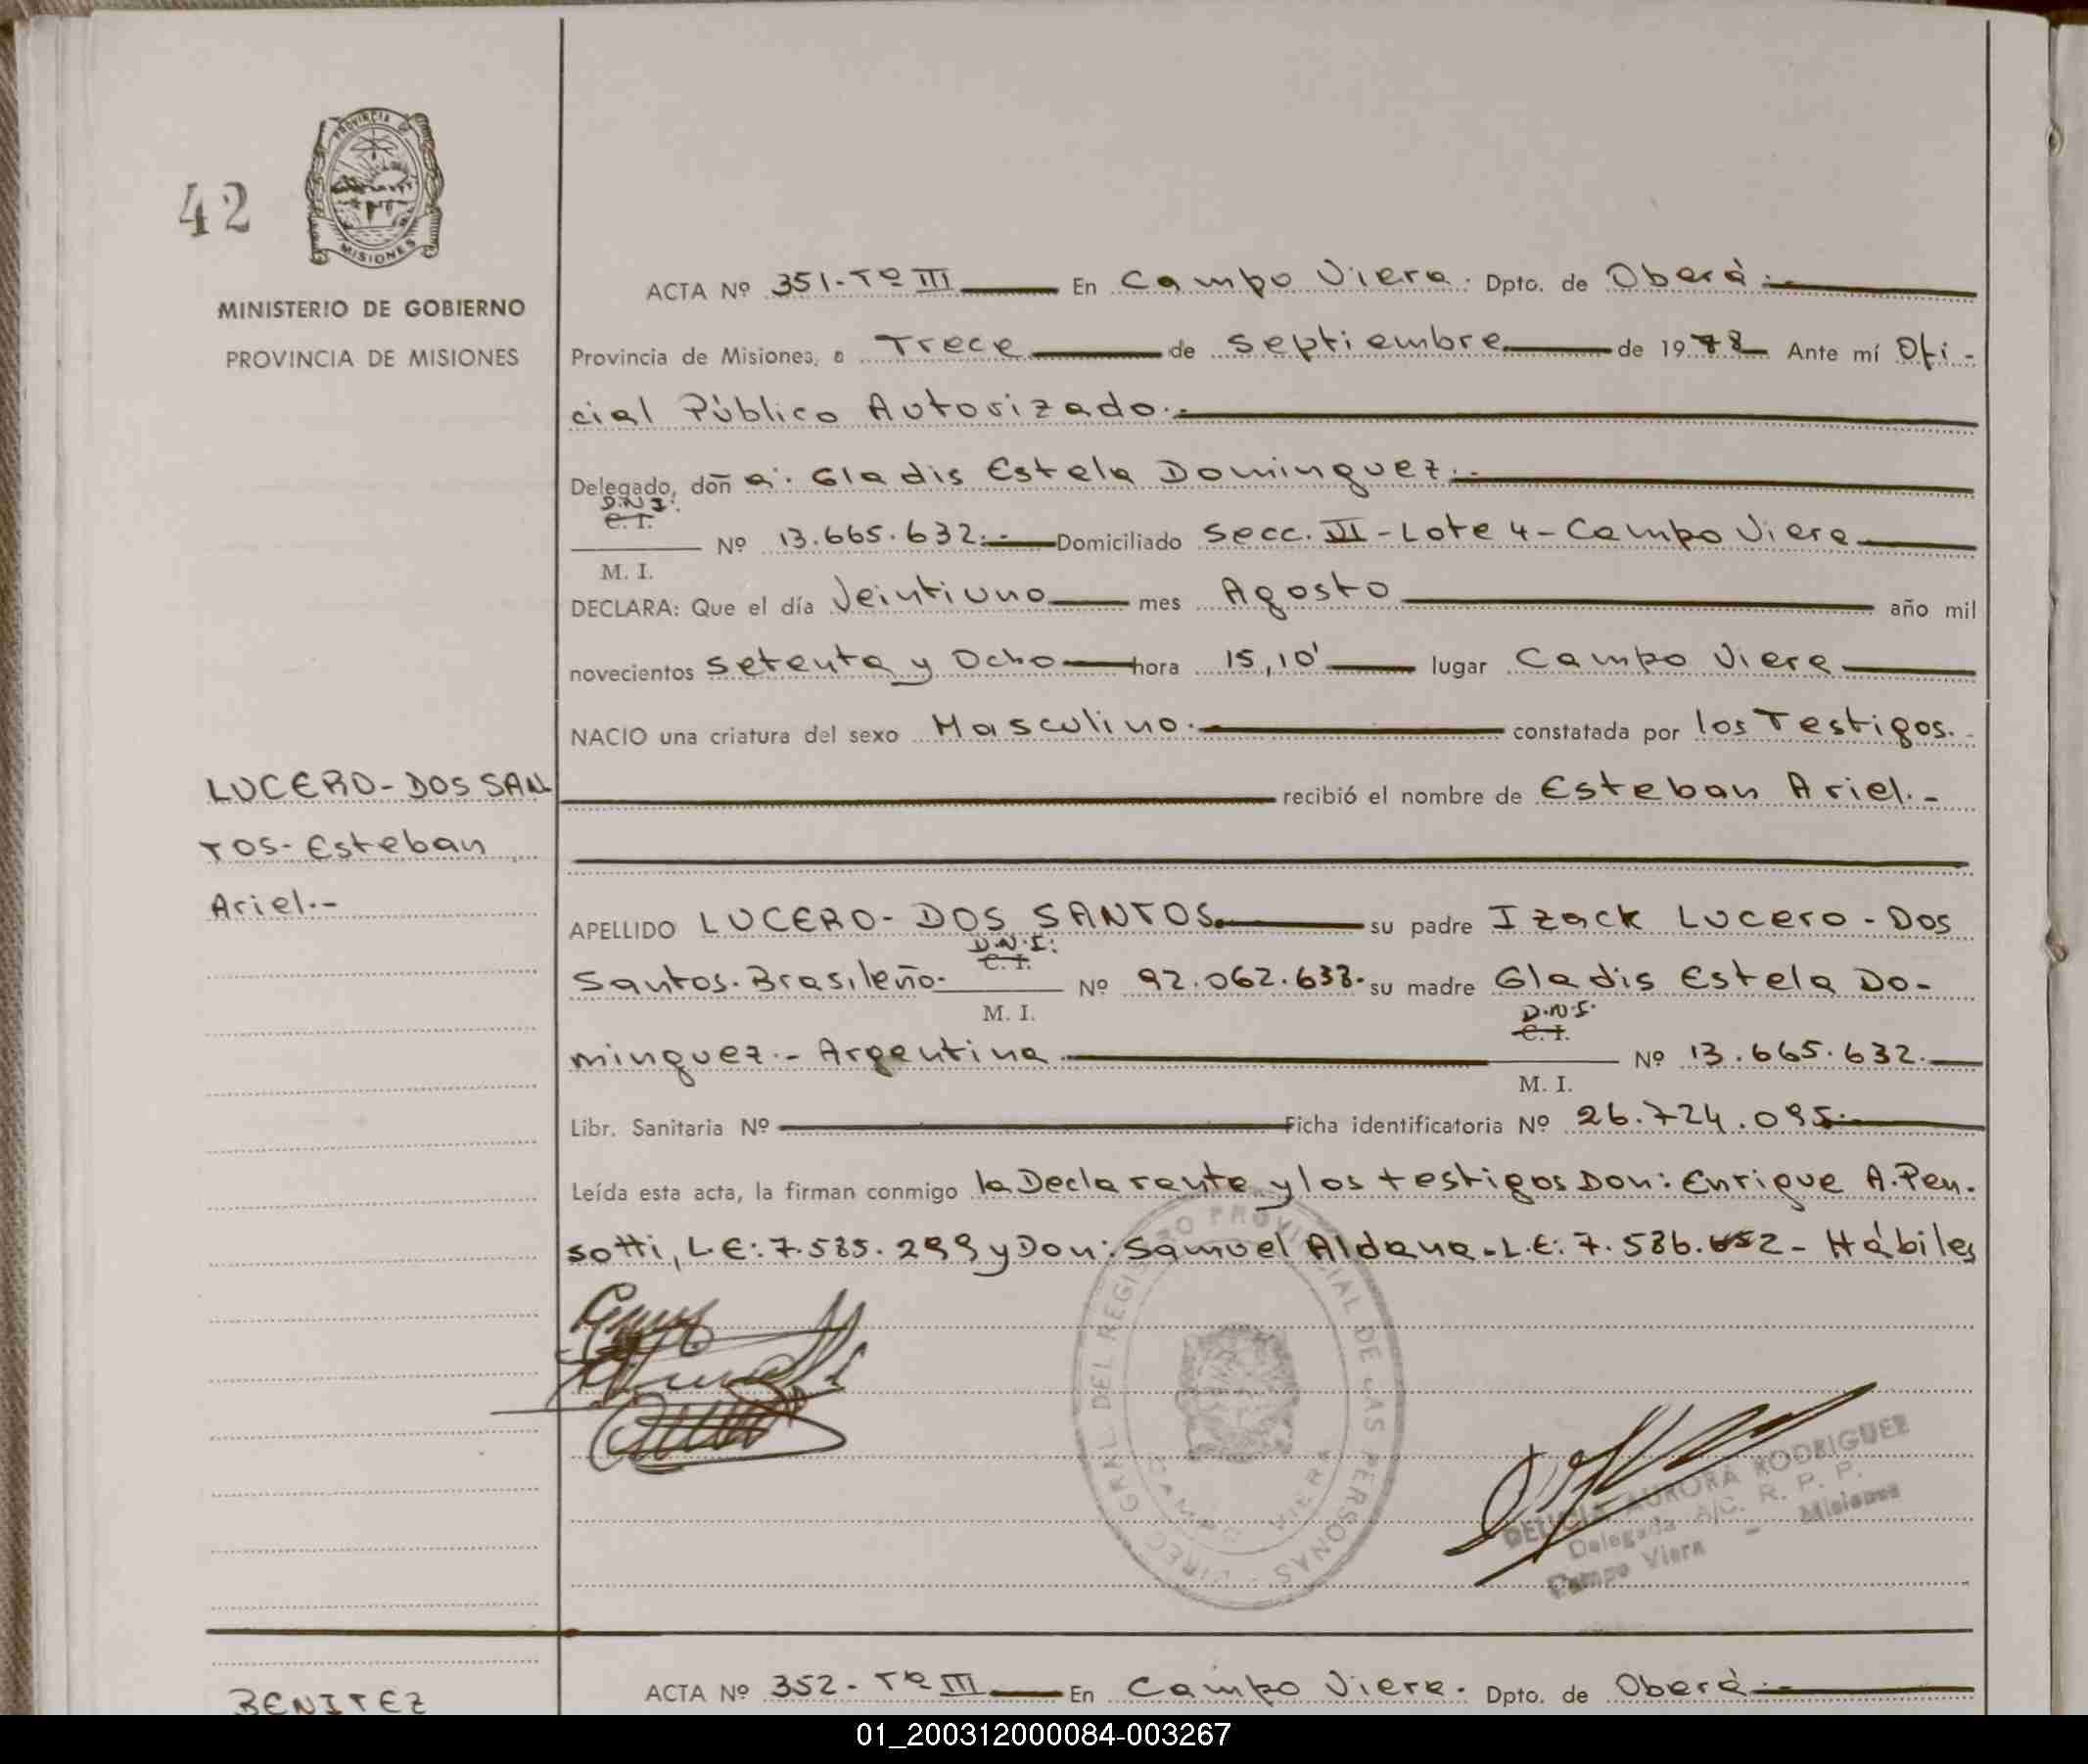 42
PROVINCIA DE
MISIONES
MINISTERIO DE GOBIERNO
PROVINCIA DE MISIONES
ACTA Nº 351-Tº III En Campo Viera. Dpto. de Oberá.-
Provincia de Misiones, a Trece de Septiembre de 1978 Ante mí Ofi-
cial Público Autorizado.-
Delegado, doña: Gladis Estela Dominguez.-
D.N.I.
C.I.
Nº 13.665.632.- Domiciliado Secc. VI - Lote 4 - Campo Viera
M. I.
DECLARA: Que el día Veintiuno mes Agosto año mil
novecientos Setenta y Ocho hora 15,10' lugar Campo Viera
NACIO una criatura del sexo Masculino.- constatada por los Testigos.-
LUCERO-DOS SAN
recibió el nombre de Esteban Ariel.-
TOS- Esteban
Ariel.-
APELLIDO LUCERO- DOS SANTOS. su padre Izack Lucero - Dos
D.N.I.
C.I.
Santos. Brasileño. Nº 92.062.638. su madre Gladis Estela Do-
M. I.
D.N.I.
C.I.
minguez.- Argentina Nº 13.665.632.
M. I.
Libr. Sanitaria Nº Ficha identificatoria Nº 26.724.095.
Leída esta acta, la firman conmigo la Declarante y los testigos Don: Enrique A. Pen.
sotti, L.E: 7.585.299 y Don: Samuel Aldana. L.E: 7.586.652 - Hábiles
DIREC GRAL DEL REGISTRO PROVINCIAL DE LAS PERSONAS
CAMPO VIERA
DELICIA AURORA RODRIGUEZ
Delegada A/C. R. P. P.
Campo Viera - Misiones
ACTA Nº 352- Tº III En Campo Viera. Dpto. de Oberá.-
BENITEZ
01_200312000084-003267